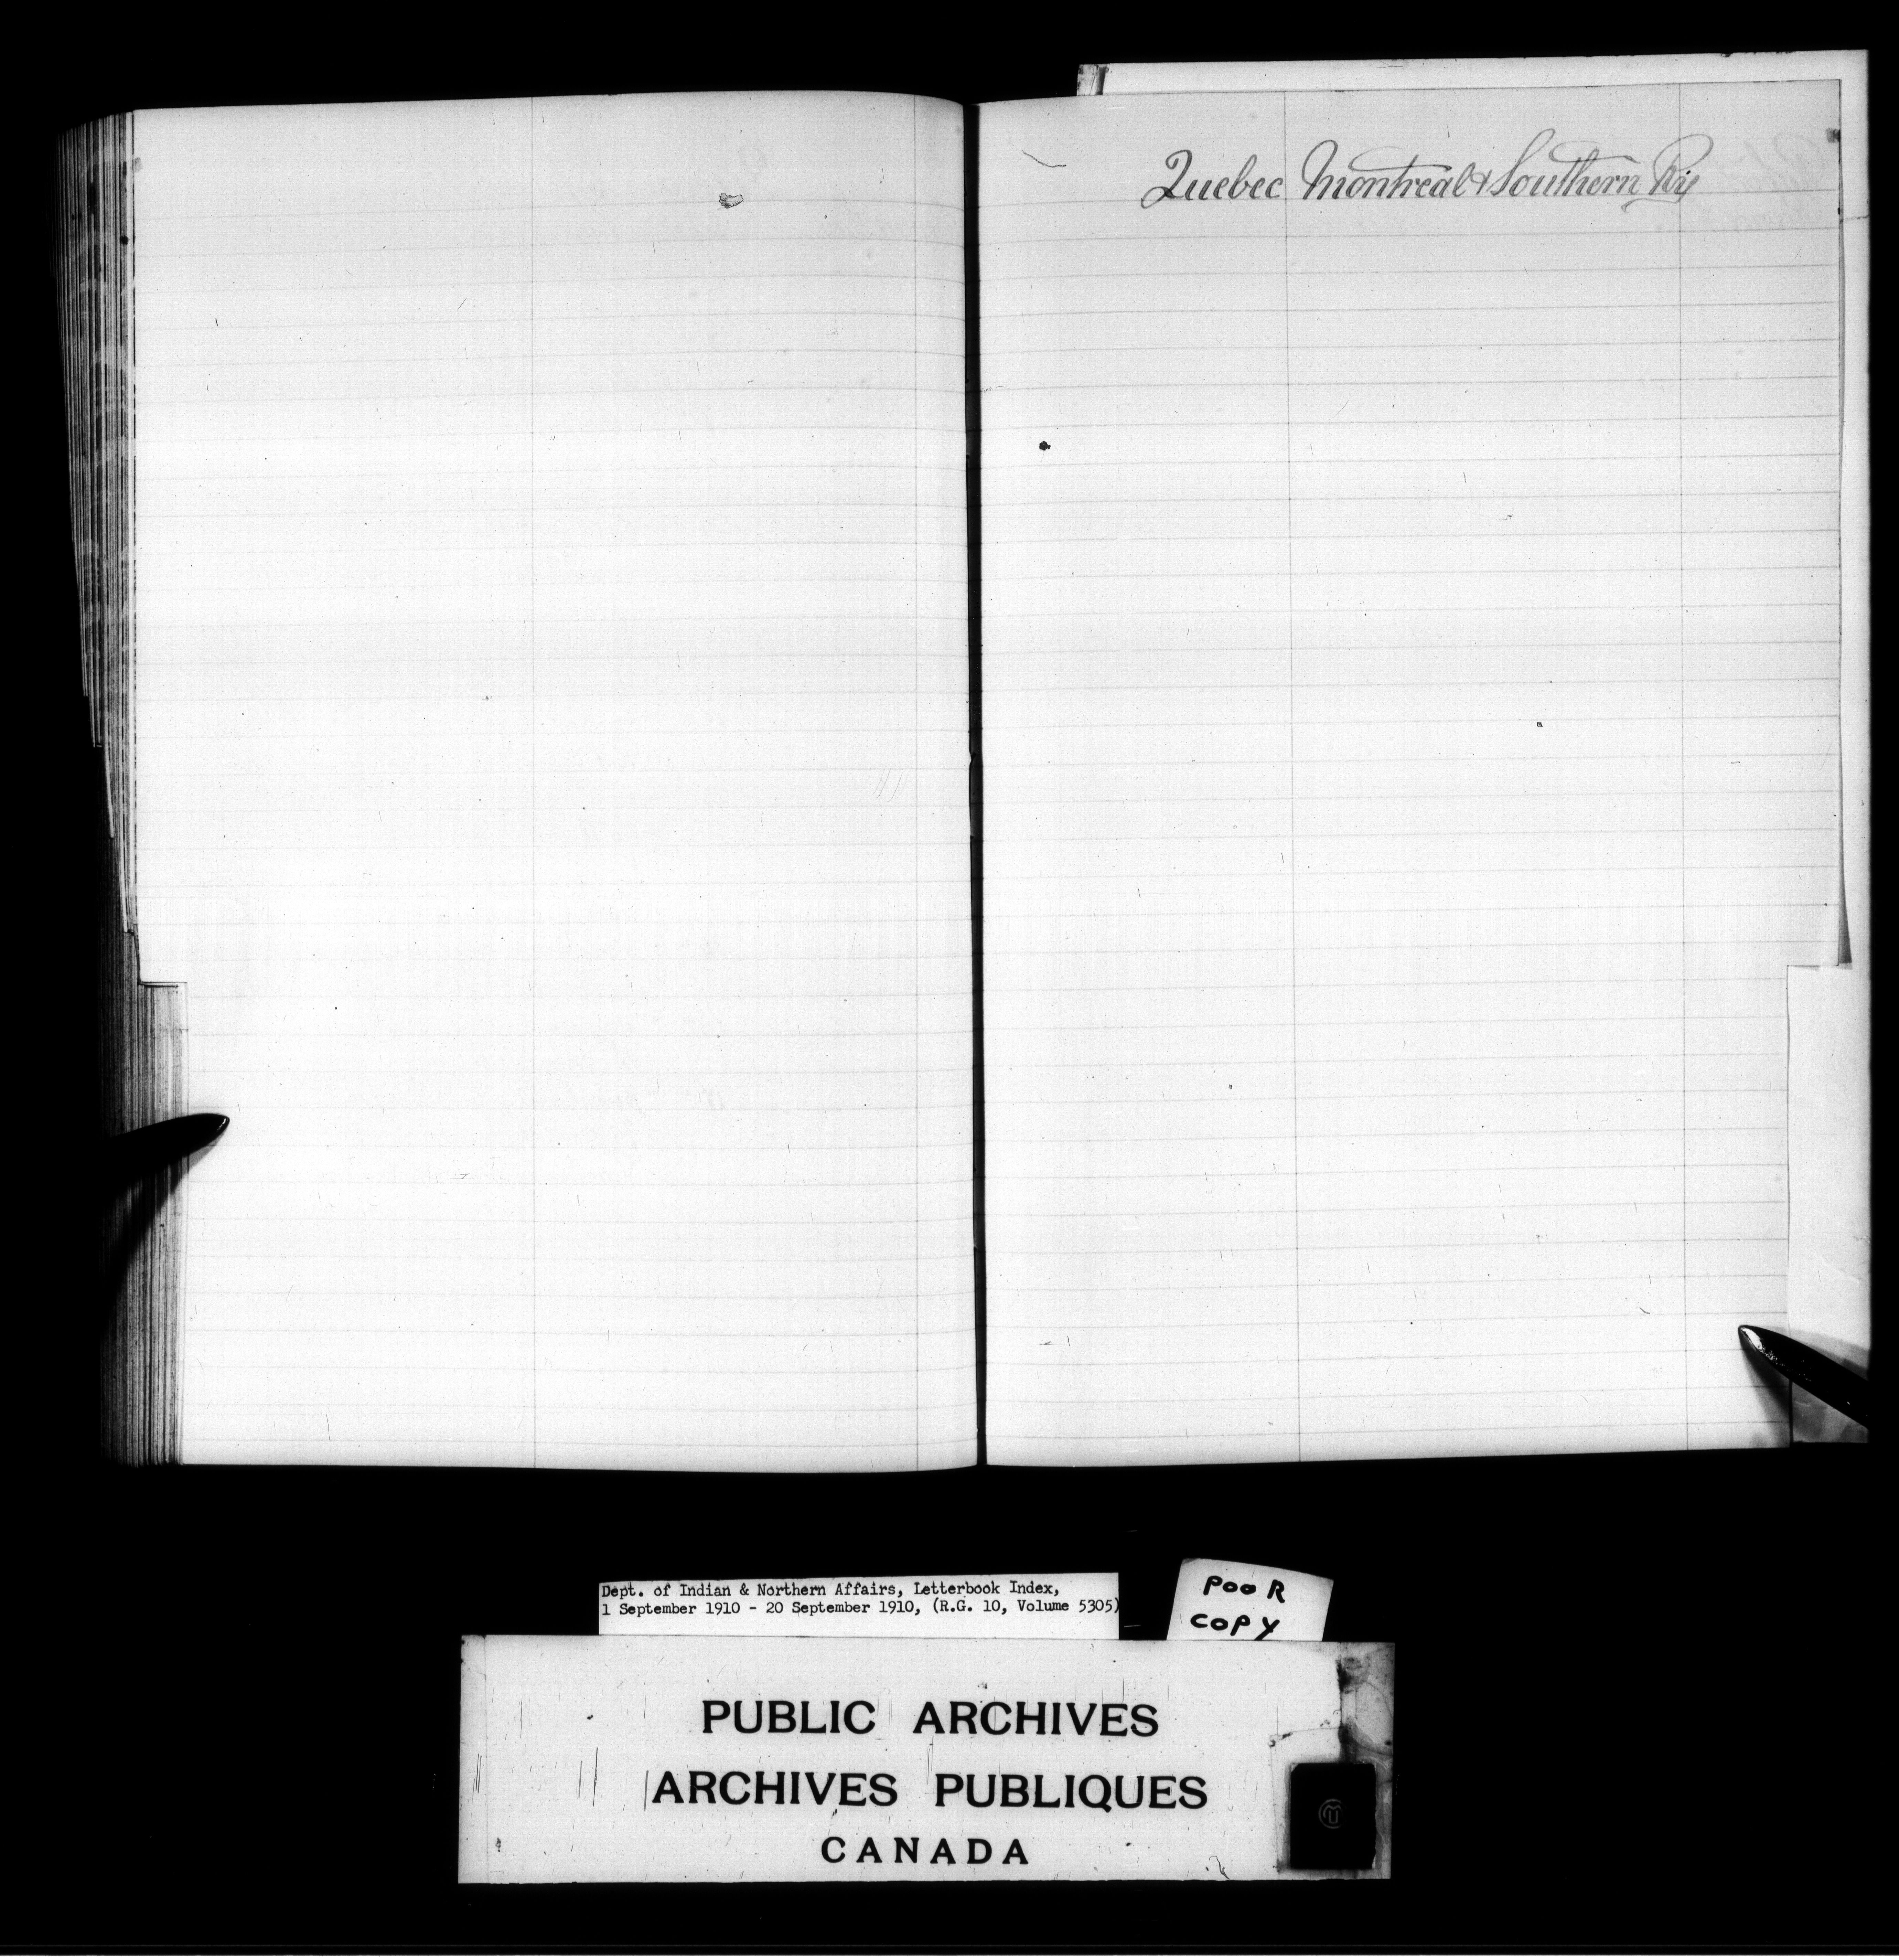 Quebec Montreal & Southern Ry
Dept. of Indian & Northern Affairs, Letterbook Index,
1 September 1910 - 20 September 1910, (R.G. 10, Volume 5305)
POOR
COPY
PUBLIC ARCHIVES
ARCHIVES PUBLIQUES
CANADA